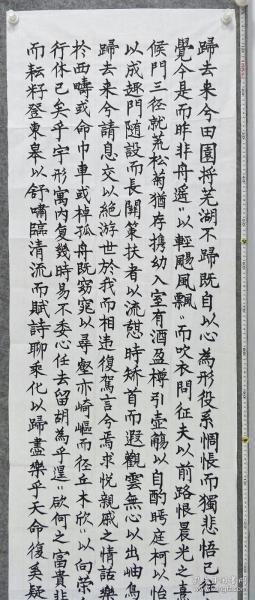 歸去來兮田園將芜湖不歸既自以心為形役系惆悵而獨悲悟已往
覺今是而昨非舟遥〻以輕颺風飄〻而吹衣問征夫以前路恨晨光之熹
候門三径就荒松菊猶存携幼入室有酒盈樽引壺觴以自酌眄庭柯以怡
以成趣門随設而長関策扶者以流憩時矫首而遐觀雲無心以出岫鳥
歸去來兮請息交以絶游世於我而相違復駕言兮焉求悦親戚之情話樂
扵西疇或命巾車或棹孤舟既窈窕以尋壑亦崎嶇而径丘木欣〻以向荣
行休已矣乎宇形寓内复幾時易不委心任去留胡為乎遑〻欲何之富貴非
而耘籽登東皋以舒嘯臨清流而賦詩聊乘化以歸盡樂乎天命復奚疑